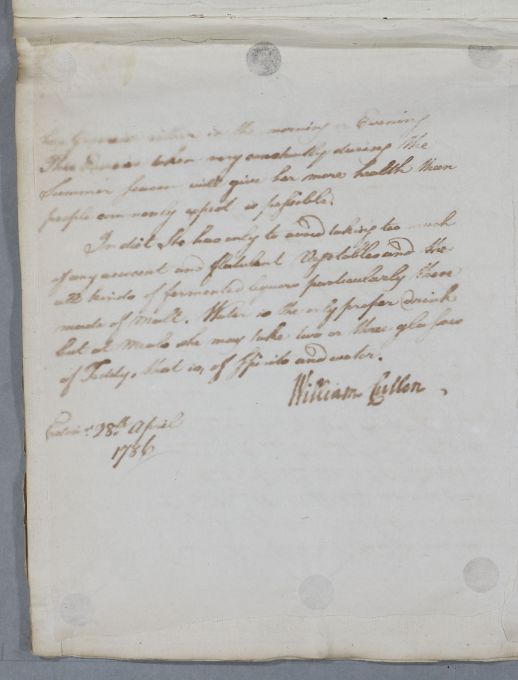 either in the morning or Evening
This Exercise taken very constantly during the
Summer Season will give her more health than
people commonly expect is possible.
In diet She has only to avoid taking too much
of any acescent and flatulent Vegetables and the
all kinds of fermented liquors particularly those
made of malt. Water is the only proper drink
but at Meals she may take two or three glasses
of Toddy, that is, of Spirits and water.
William Cullen
Edinr. 28th April
1786